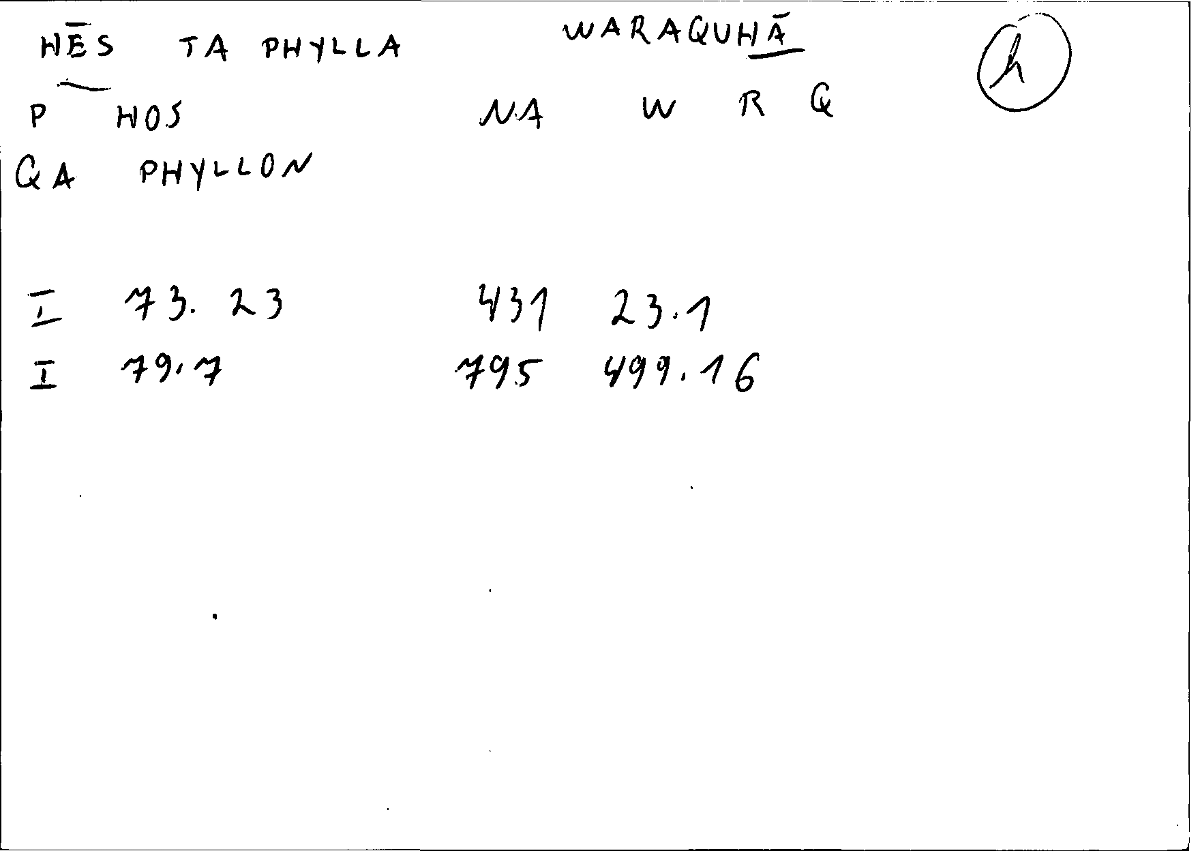 HĒS TA PHYLLA WARAQUHĀ h
P HOS NA W R Q
QA PHYLLON
I 73.23 431 23.1
I 79.7 795 499.16